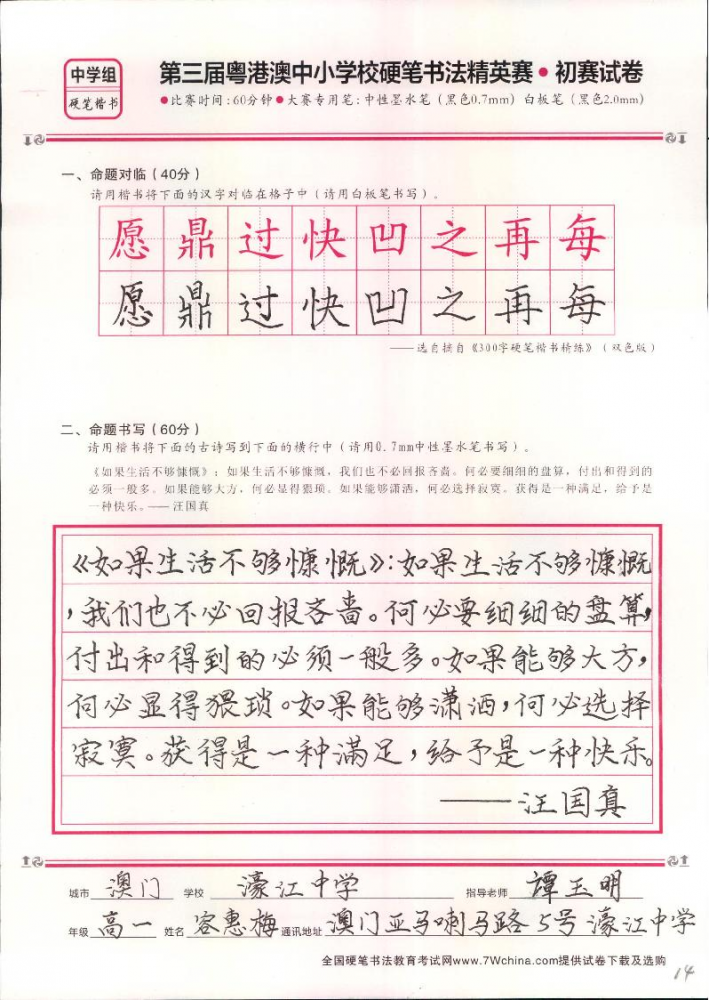 中学组
硬笔楷书
第三届粤港澳中小学校硬笔书法精英赛•初赛试卷
●比赛时间:60分钟●大赛专用笔:中性墨水笔（黑色0.7mm）白板笔（黑色2.0mm）
一、命题对临（40分）
请用楷书将下面的汉字对临在格子中（请用白板笔书写）。
愿鼎过快凹之再每
愿鼎过快凹之再每
——选自摘自《300字硬笔楷书精练》（双色版）
二、命题书写（60分）
请用楷书将下面的古诗写到下面的横行中（请用0.7mm中性墨水笔书写）。
《如果生活不够慷慨》：如果生活不够慷慨，我们也不必回报吝啬。何必要细细的盘算，付出和得到的
必须一般多。如果能够大方，何必显得猥琐。如果能够潇洒，何必选择寂寞。获得是一种满足，给予是
一种快乐。——汪国真
《如果生活不够慷慨》:如果生活不够慷慨
，我们也不必回报吝啬。何必要细细的盘算，
付出和得到的必须一般多。如果能够大方，
何必显得猥琐。如果能够潇洒，何必选择
寂寞。获得是一种满足，给予是一种快乐。
——汪国真
城市 澳门 学校 濠江中学 指导老师 谭玉明
年级 高一 姓名 容惠梅 通讯地址 澳门亚马喇马路5号濠江中学
全国硬笔书法教育考试网www.7Wchina.com提供试卷下载及选购
14